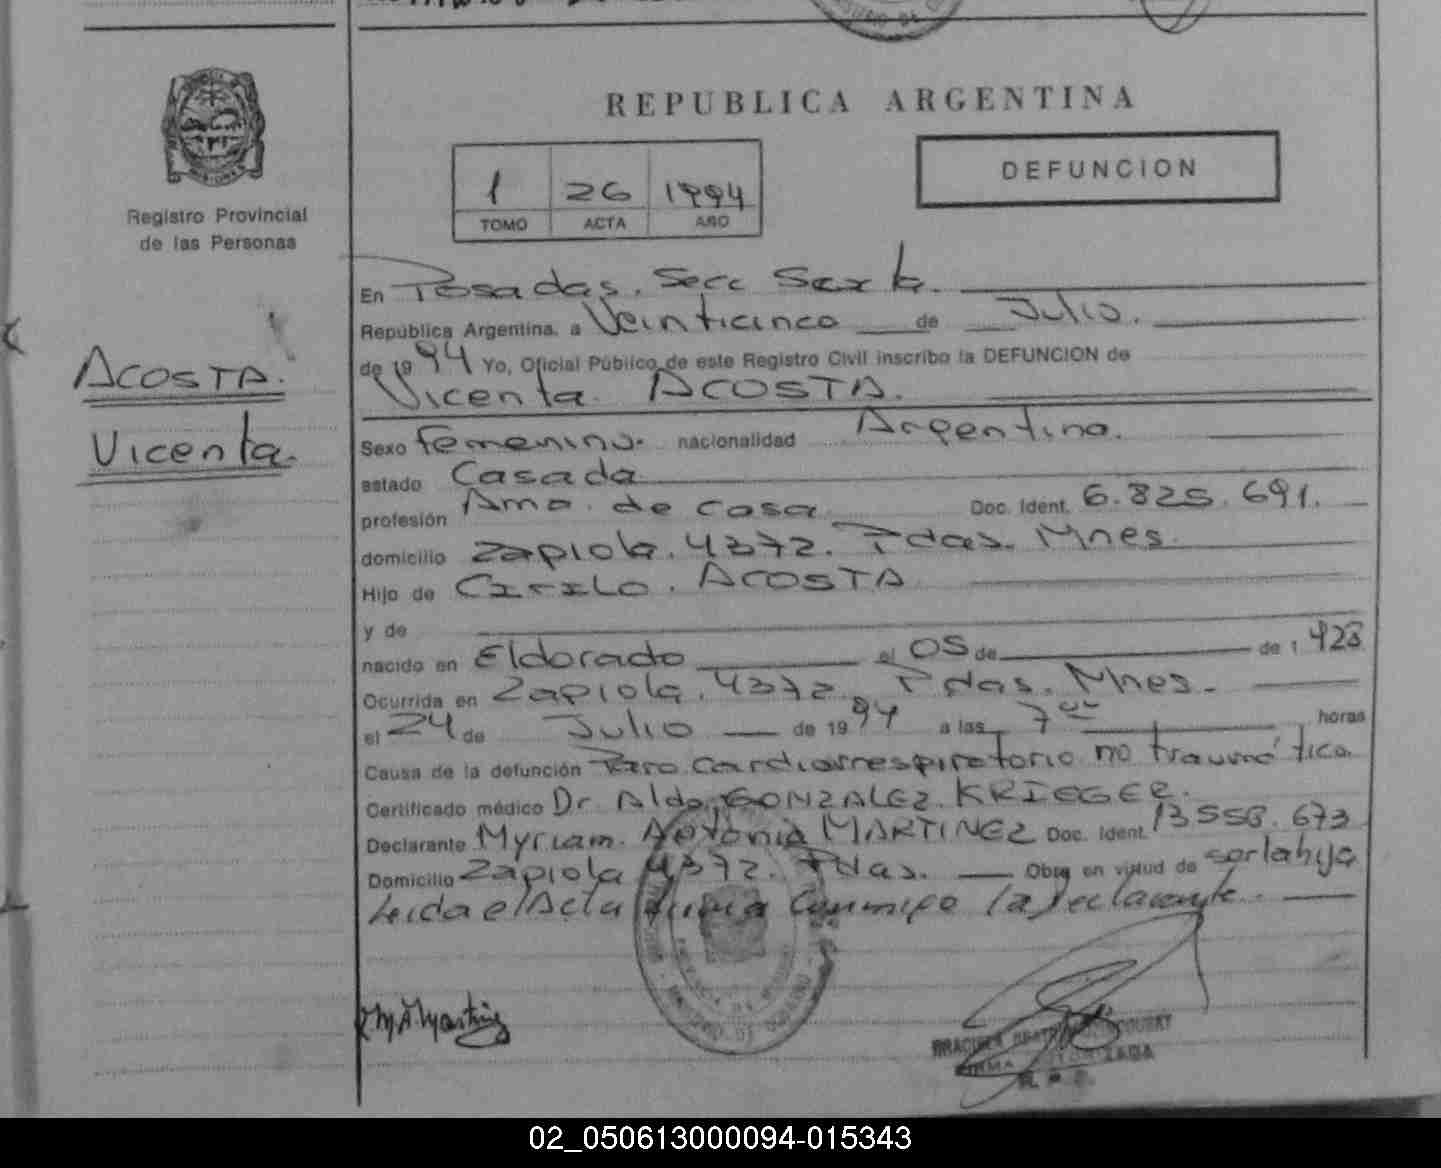 REPUBLICA ARGENTINA
1 26 1994
TOMO ACTA AÑO
DEFUNCION
Registro Provincial
de las Personas
ACOSTA.
Vicenta.
En Posadas. Secc Sexta.
República Argentina, a Veinticinco de Julio.
de 1994 Yo, Oficial Público de este Registro Civil inscribo la DEFUNCION de
Vicenta ACOSTA.
Sexo Femenino. nacionalidad Argentina.
estado Casada
profesión Ama de casa Doc. Ident. 6.825.691.
domicilio Zapiola. 4372. Pdas. Mnes.
Hijo de CIRILO. ACOSTA
y de
nacido en Eldorado el 05 de de 1928
Ocurrida en Zapiola. 4372. Pdas. Mnes.
el 24 de Julio de 1994 a las 7 horas
Causa de la defunción Paro cardiorrespiratorio no traumático
Certificado médico Dr. Aldo GONZALEZ. KRIEGER.
Declarante Myriam. Antonia MARTINEZ Doc. Ident. 13.558.673
Domicilio Zapiola 4372. Pdas. Obra en virtud de ser la hija
Leida el Acta firma conmigo la declarante.
02_050613000094-015343